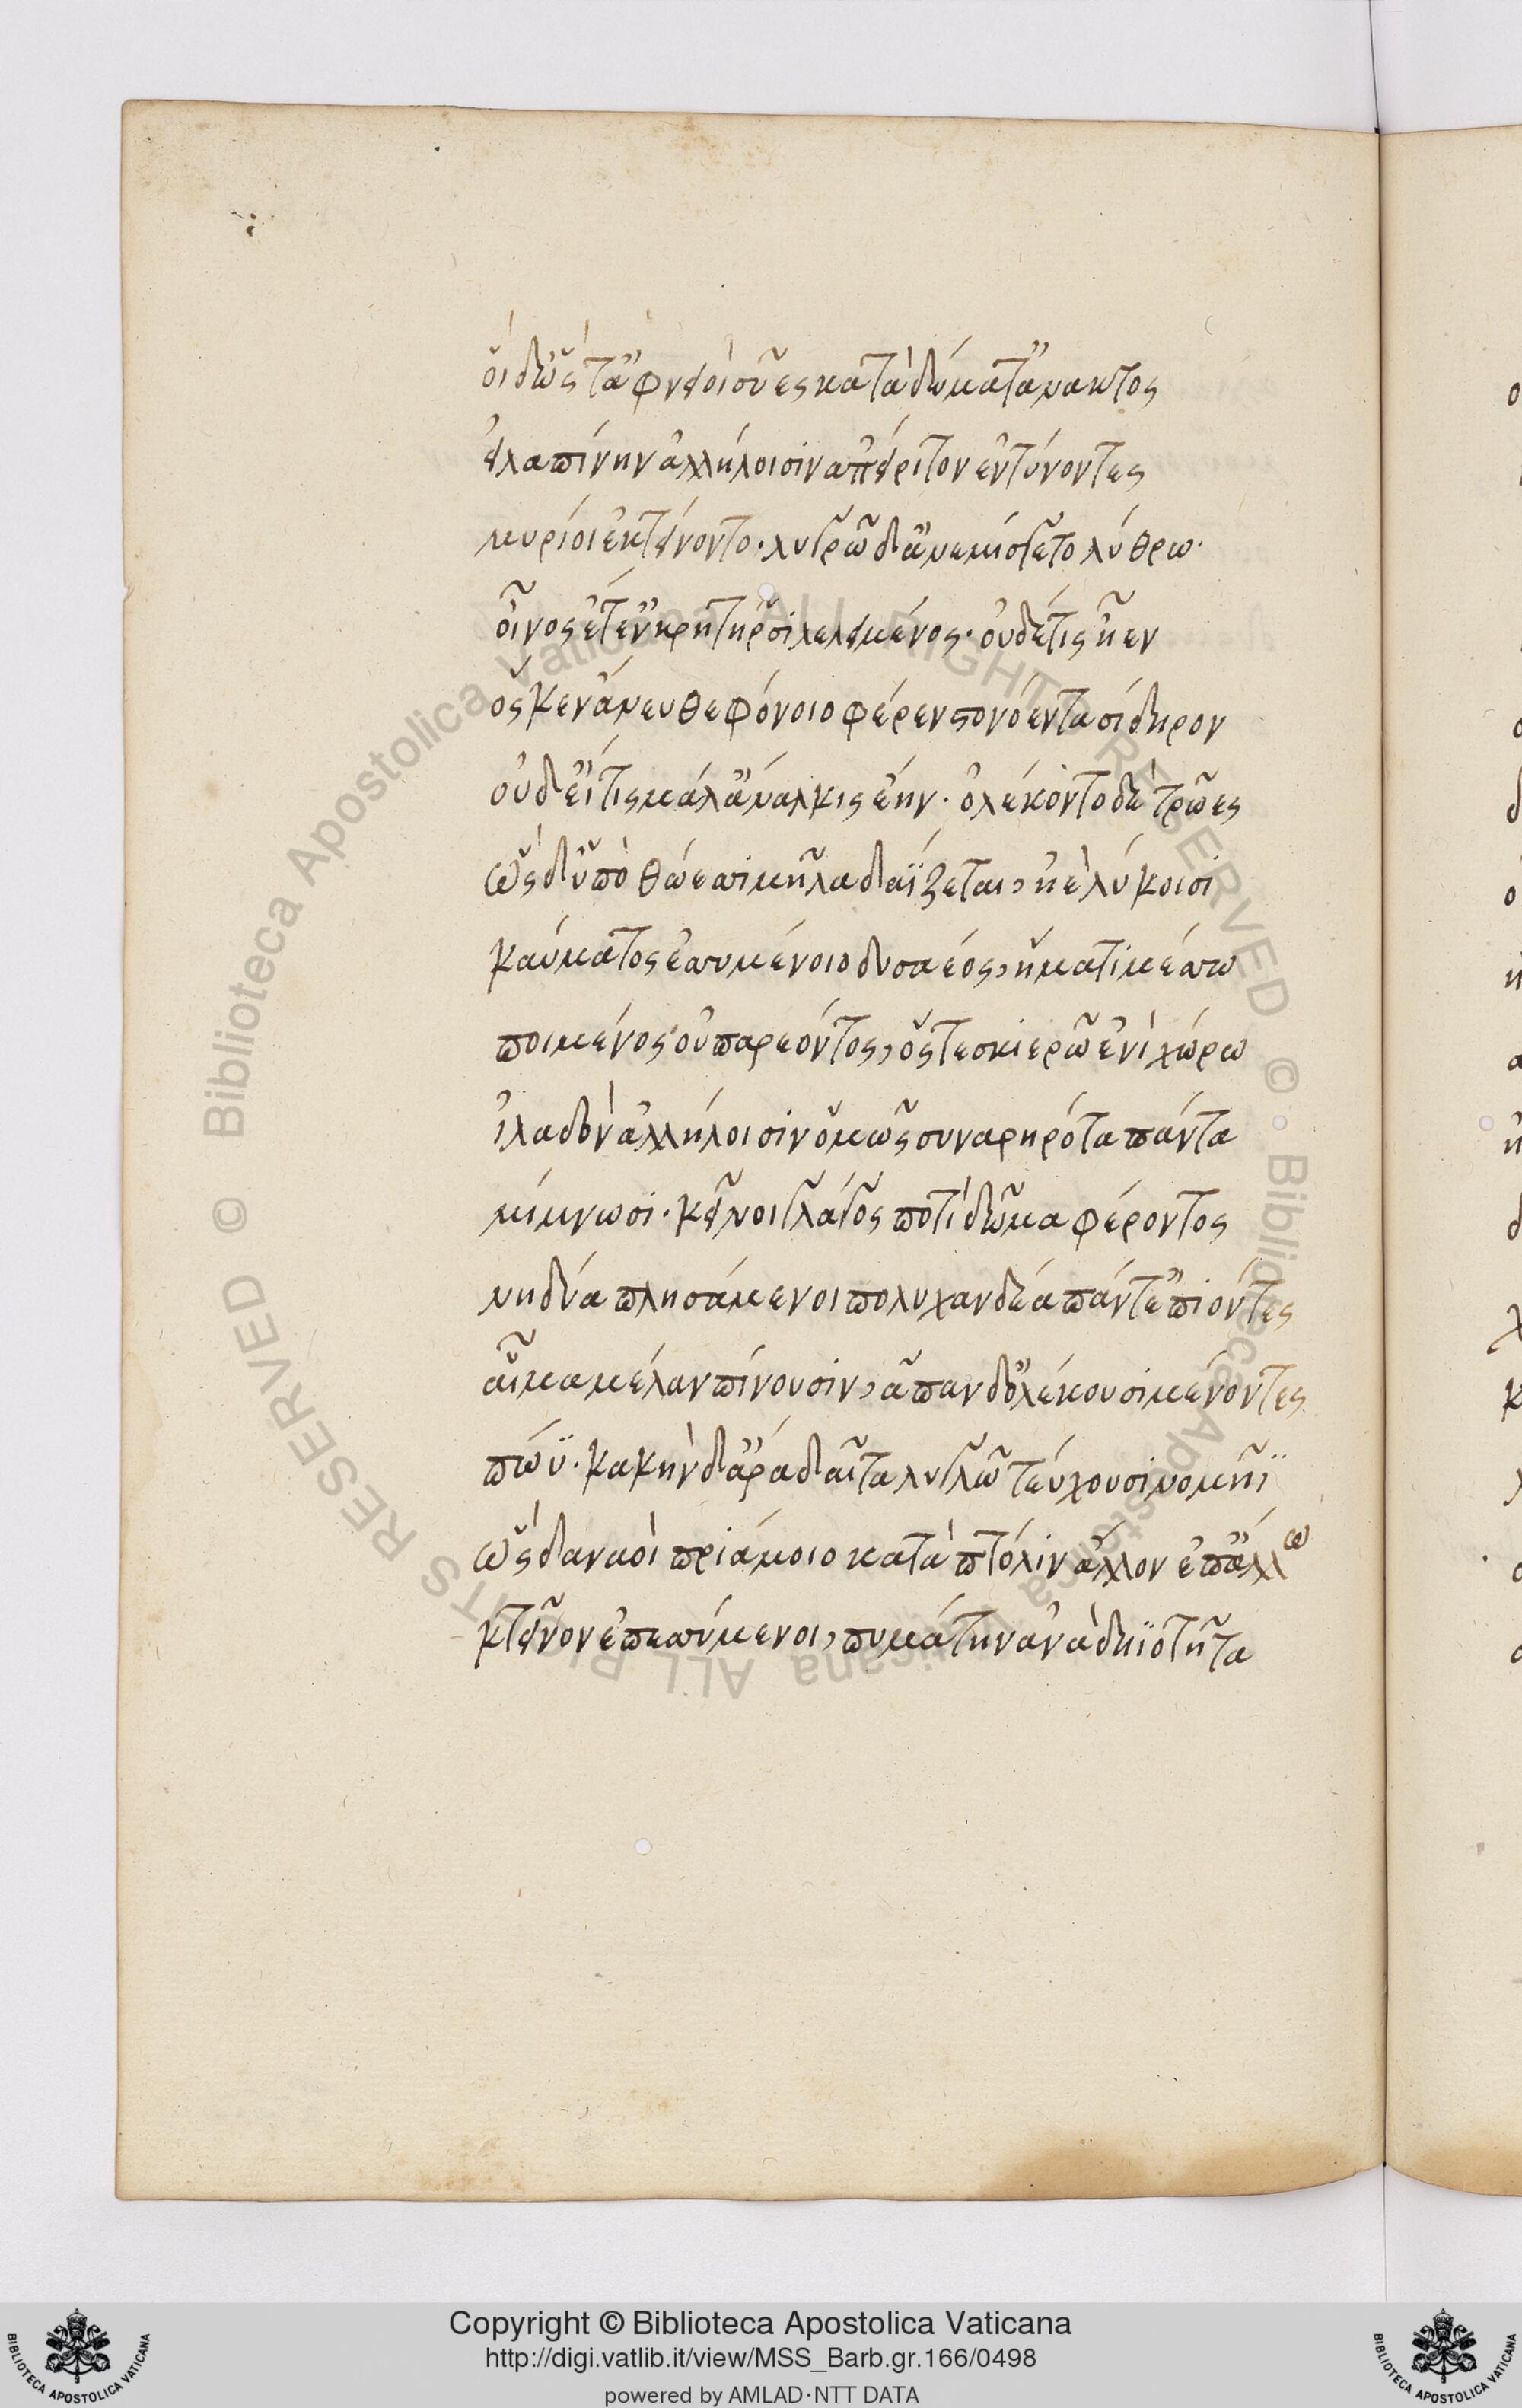 οἱ δ' ὥς τ' ἀφνειοὶ σύες κατὰ δώματ' ἄνακτος
εἰλαπίνην ἀλλήλοισιν ἀπείριτον ἐντύνοντες
μυρίοι ἐκτείνοντο· λυγρῷ δ' ἀνεμίσγετο λύθρω·
οἶνος ἔτ' ἐν κρητῆρσι λελειμένος· οὐδέ τις ἦεν
ὅς κεν ἄνευθε φόνοιο φέρεν στονόεντα σίδηρον
οὐδ' εἴ τις μάλ' ἄναλκις ἔην· ὀλέκοντο δὲ τρῶες
ὡς δ' ὑπὸ θώεσσι μῆλα δαΐζεται, ἠὲ λύκοισι
καύματος ἐσσυμένοιο δυσαέος, ἤματι μέσσω
ποιμένος οὐ παρεόντος, ὅς τε σκιερῷ ἐνὶ χώρω
ἰλαδὸν ἀλλήλοισιν ὁμῶς συναρηρότα πάντα
μίμνωσι· κεῖνοι γλάγος ποτὶ δῶμα φέροντος
νηδύα πλησάμενοι πολυχανδέα πάντ' ἐπιόντες
αἷμα μέλαν πίνουσιν, ἅπαν δ' ὀλέκουσι μένοντες
πώϋ· κακὴν δ' ἄρα δαῖτα λυγρῷ τεύχουσι νομῆϊ
ὡς δαναοὶ πριάμοιο κατὰ πτόλιν ἄλλον ἐπ' ἄλλω
κτεῖνον ἐπεσσύμενοι, πυμάτην ἀνὰ δηϊοτῆτα
Copyright © Biblioteca Apostolica Vaticana
http://digi.vatlib.it/view/MSS_Barb.gr.166/0498
powered by AMLAD·NTT DATA